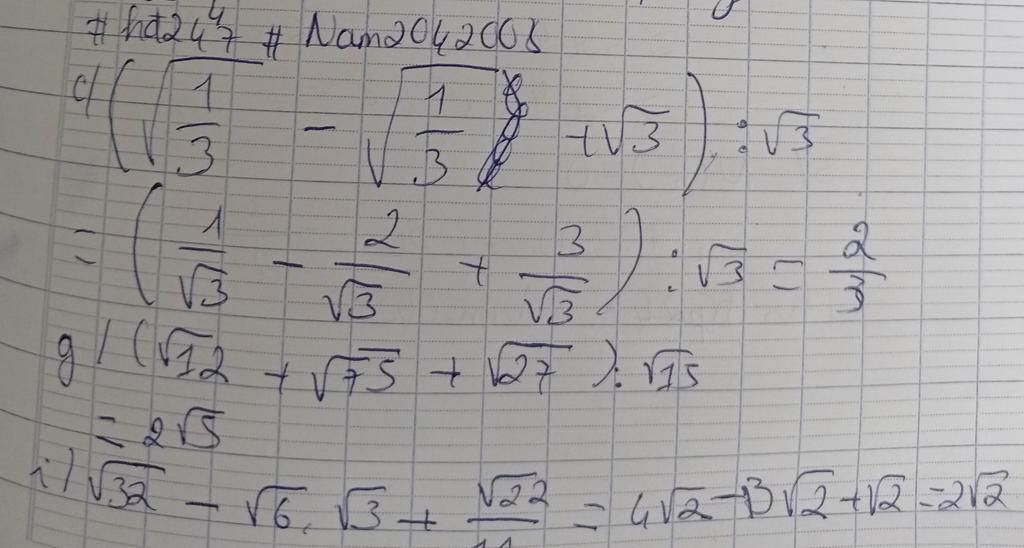 # hd247 # Nam2042008
c/ (√(1/3) - √(1/3) + √3) : √3
= (1/√3 - 2/√3 + 3/√3) : √3 = 2/3
g/ (√12 + √75 + √27) : √15
= 2√5
i/ √32 - √6 . √3 + √22/11 = 4√2 - 3√2 + √2 = 2√2